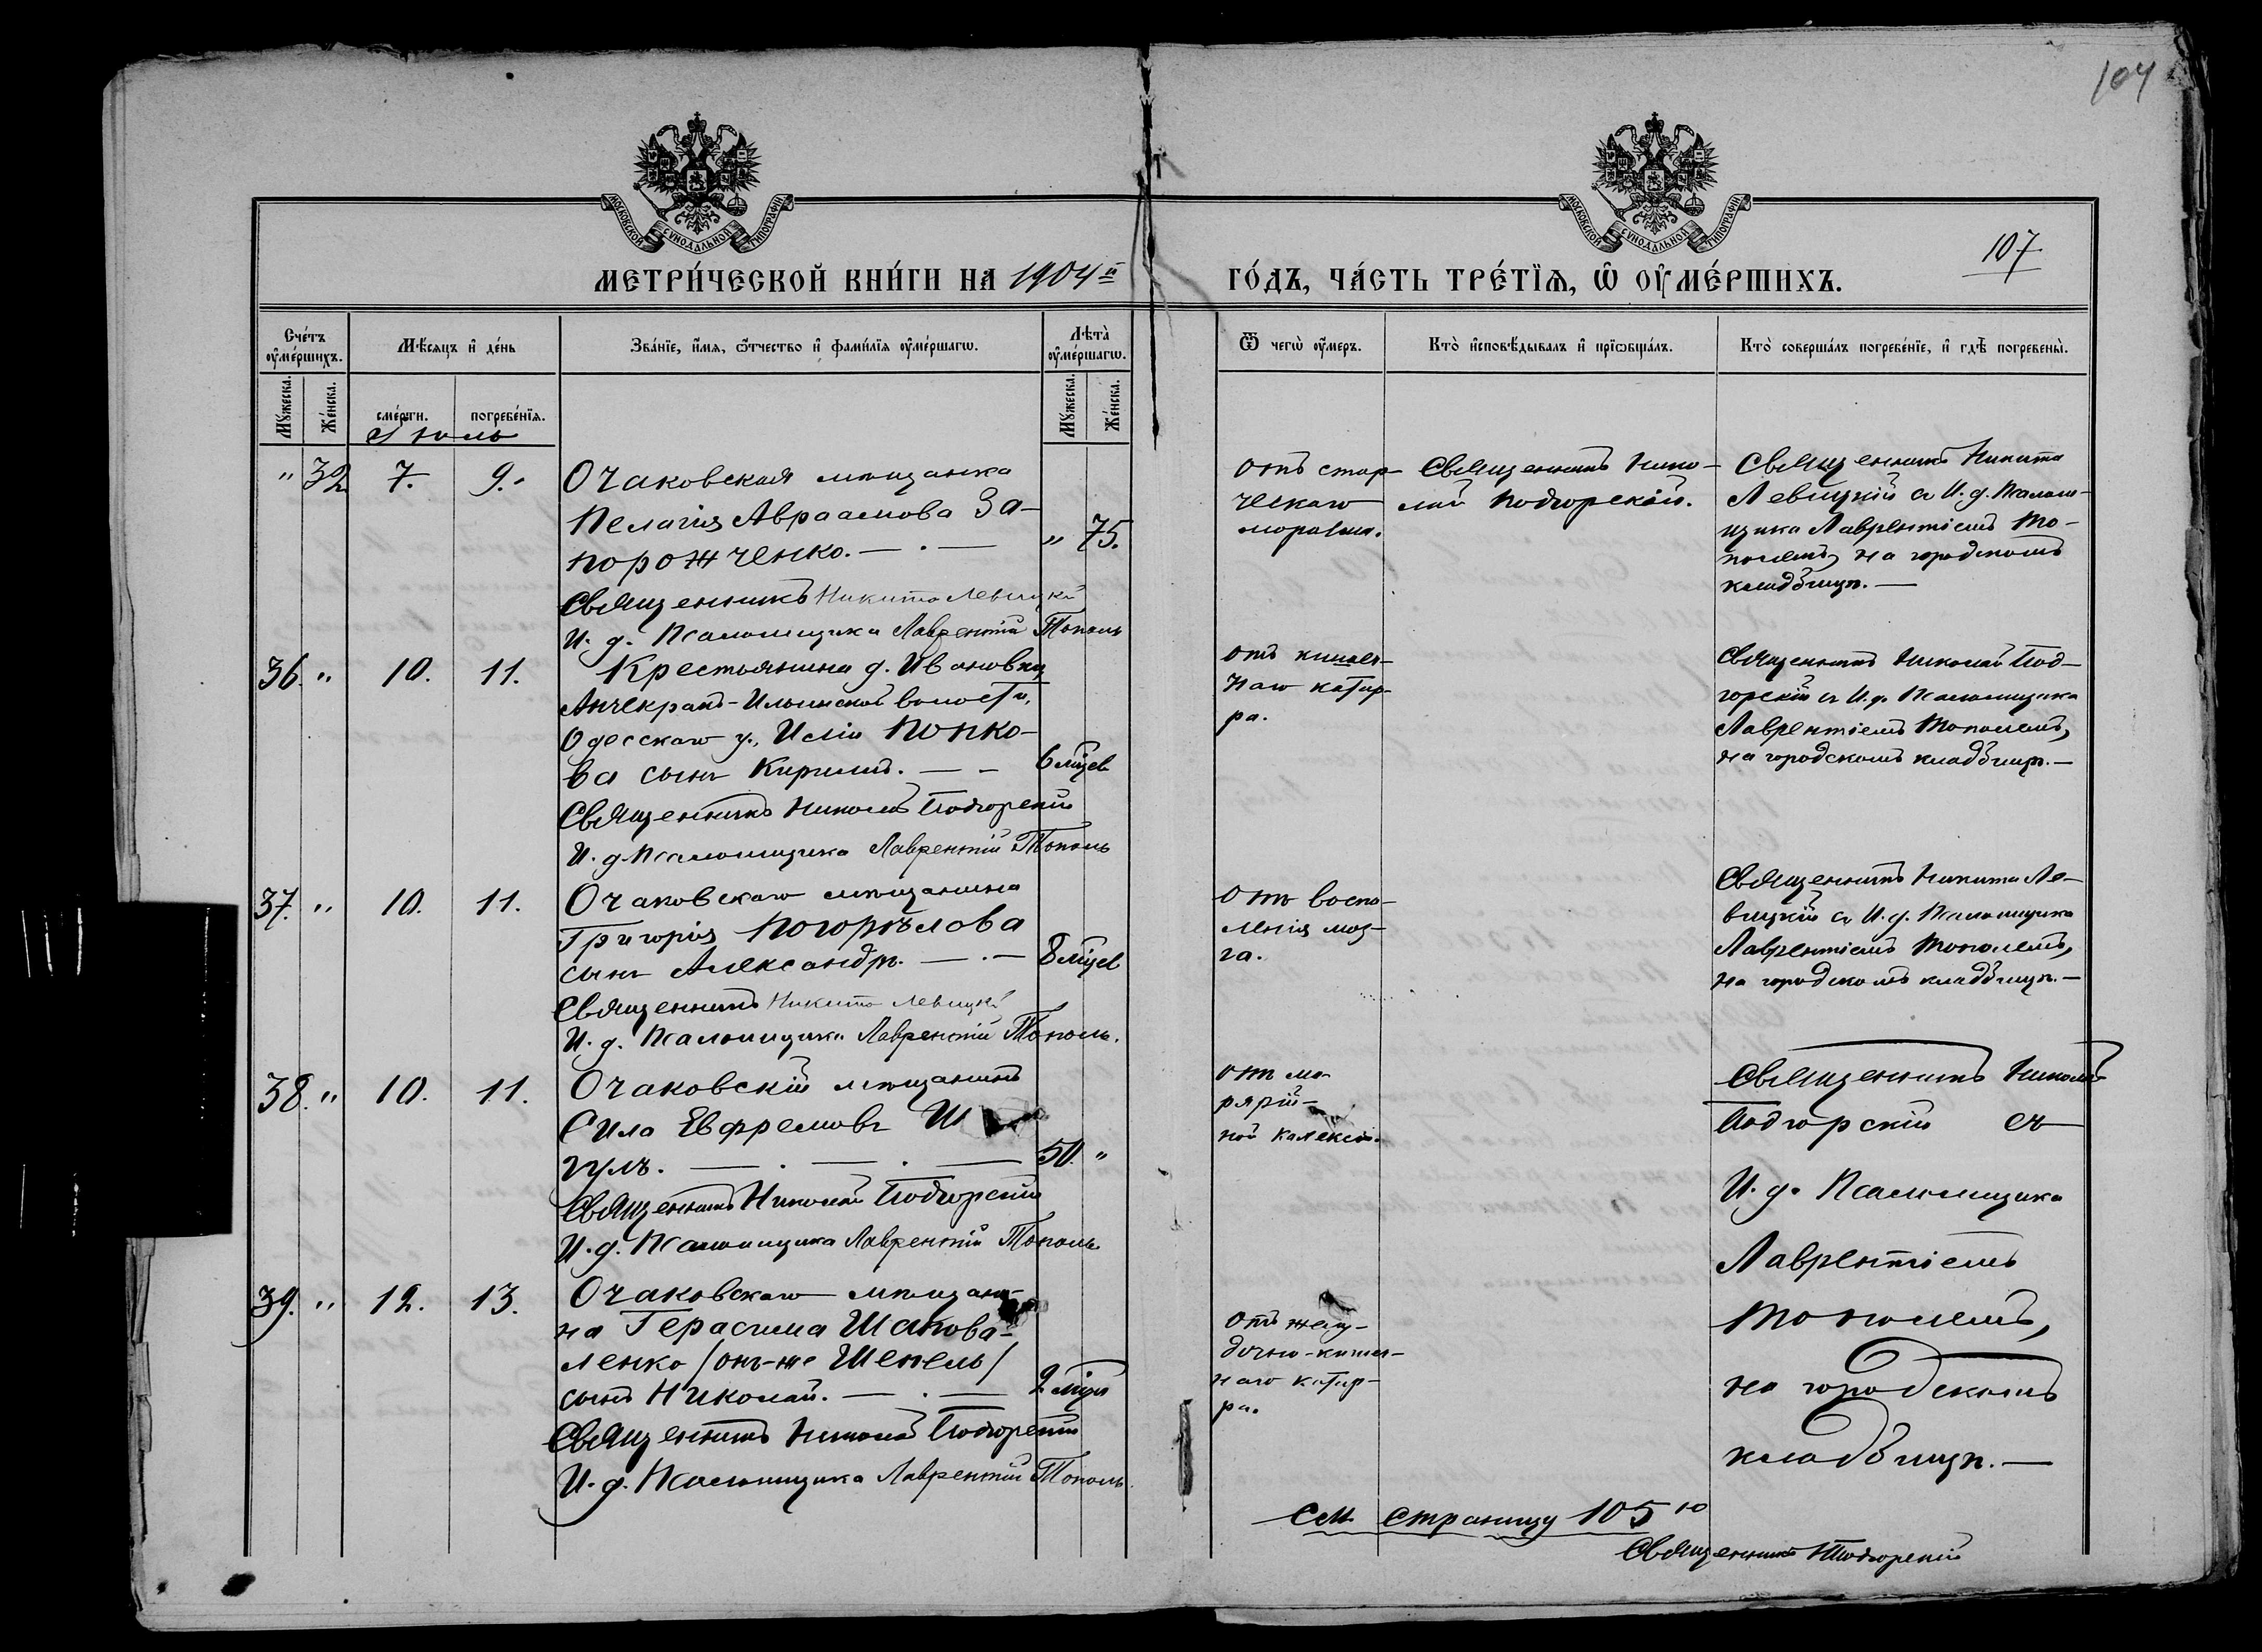 104
МОСКОВСКОЙ СУНОДАЛЬНОЙ ТИПОГРАФІИ
МОСКОВСКОЙ СУНОДАЛЬНОЙ ТИПОГРАФІИ
107
МЕТРИ́ЧЕСКОЙ КНИ́ГИ НА 1904й
ГО́ДЪ, ЧА́СТЬ ТРЕ́ТЇѦ, Ѽ ОУ҆МЕ́РШИХЪ.
Сче́тъ оу҆ме́ршихъ.
Мѣ́сяцъ и҆ де́нь
Зва́нїе, и҆́мя, ѻ҆́тчество и҆ фами́лїя оу҆ме́ршагѡ.
Лѣта̀ оу҆ме́ршагѡ.
Ѿ чегѡ̀ оу҆́меръ.
Кто̀ и҆сповѣ́дывалъ и҆ прїѡбща́лъ.
Кто̀ соверша́лъ погребе́нїе, и҆ гдѣ̀ погребены̀.
Мꙋ́жеска.
Же́нска.
сме́рти.
погребе́нїя.
Мꙋ́жеска.
Же́нска.
Іюль
" 32 7. 9.
Очаковская мѣщанка
Пелагія Авраамова За-
порожченко. — . —
" 75.
Священникъ Никита Левицкій
И. д. Псаломщика Лаврентій Тополь
отъ стар-
ческаго
Священникъ Нико-
лай Подгорскій.
Священникъ Никита
Левицкій съ И. д. Псалом-
щика Лаврентіемъ То-
полемъ, на городскомъ
кладбищѣ. —
36. " 10. 11.
Крестьянина д. Ивановки,
Анчекракъ-Ильинской волости,
Одесскаго у., Иліи Попко-
ва сынъ Кириллъ. — —
6 мѣсцев
Священникъ Николай Подгорскій
И. д. Псаломщика Лаврентій Тополь
отъ кишеч-
наго катар-
ра.
Священникъ Николай Под-
горскій съ И. д. Псаломщика
Лаврентіемъ Тополемъ,
на городскомъ кладбищѣ. —
37. " 10. 11.
Очаковскаго мѣщанина
Григорія Погорѣлова
сынъ Александръ. — . —
8 мѣсцев
Священникъ Никита Левицкій
И. д. Псаломщика Лаврентій Тополь.
отъ воспа-
ленія моз-
га.
Священникъ Никита Ле-
вицкій съ И. д. Псаломщика
Лаврентіемъ Тополемъ,
на городскомъ кладбищѣ. —
38. " 10. 11.
Очаковскій мѣщанинъ
Сила Евфремовъ Ш
гулъ. — . — . —
50. "
Священникъ Николай Подгорскій
И. д. Псаломщика Лаврентій Тополь
отъ ма-
лярій-
ной
Священникъ Николай
Подгорскій съ
И. д. Псаломщика
Лаврентіемъ
Тополемъ,
на городскомъ
кладбищѣ. —
39. " 12. 13.
Очаковскаго мѣщани-
на Герасима Шакова-
ленко /онъ-же Шепель/
сынъ Николай. — . —
2 мѣсц
Священникъ Николай Подгорскій
И. д. Псаломщика Лаврентій Тополь
отъ желу-
дочно-кишеч-
наго катар-
ра.
См. страницу 105ю
Священникъ Подгорскій